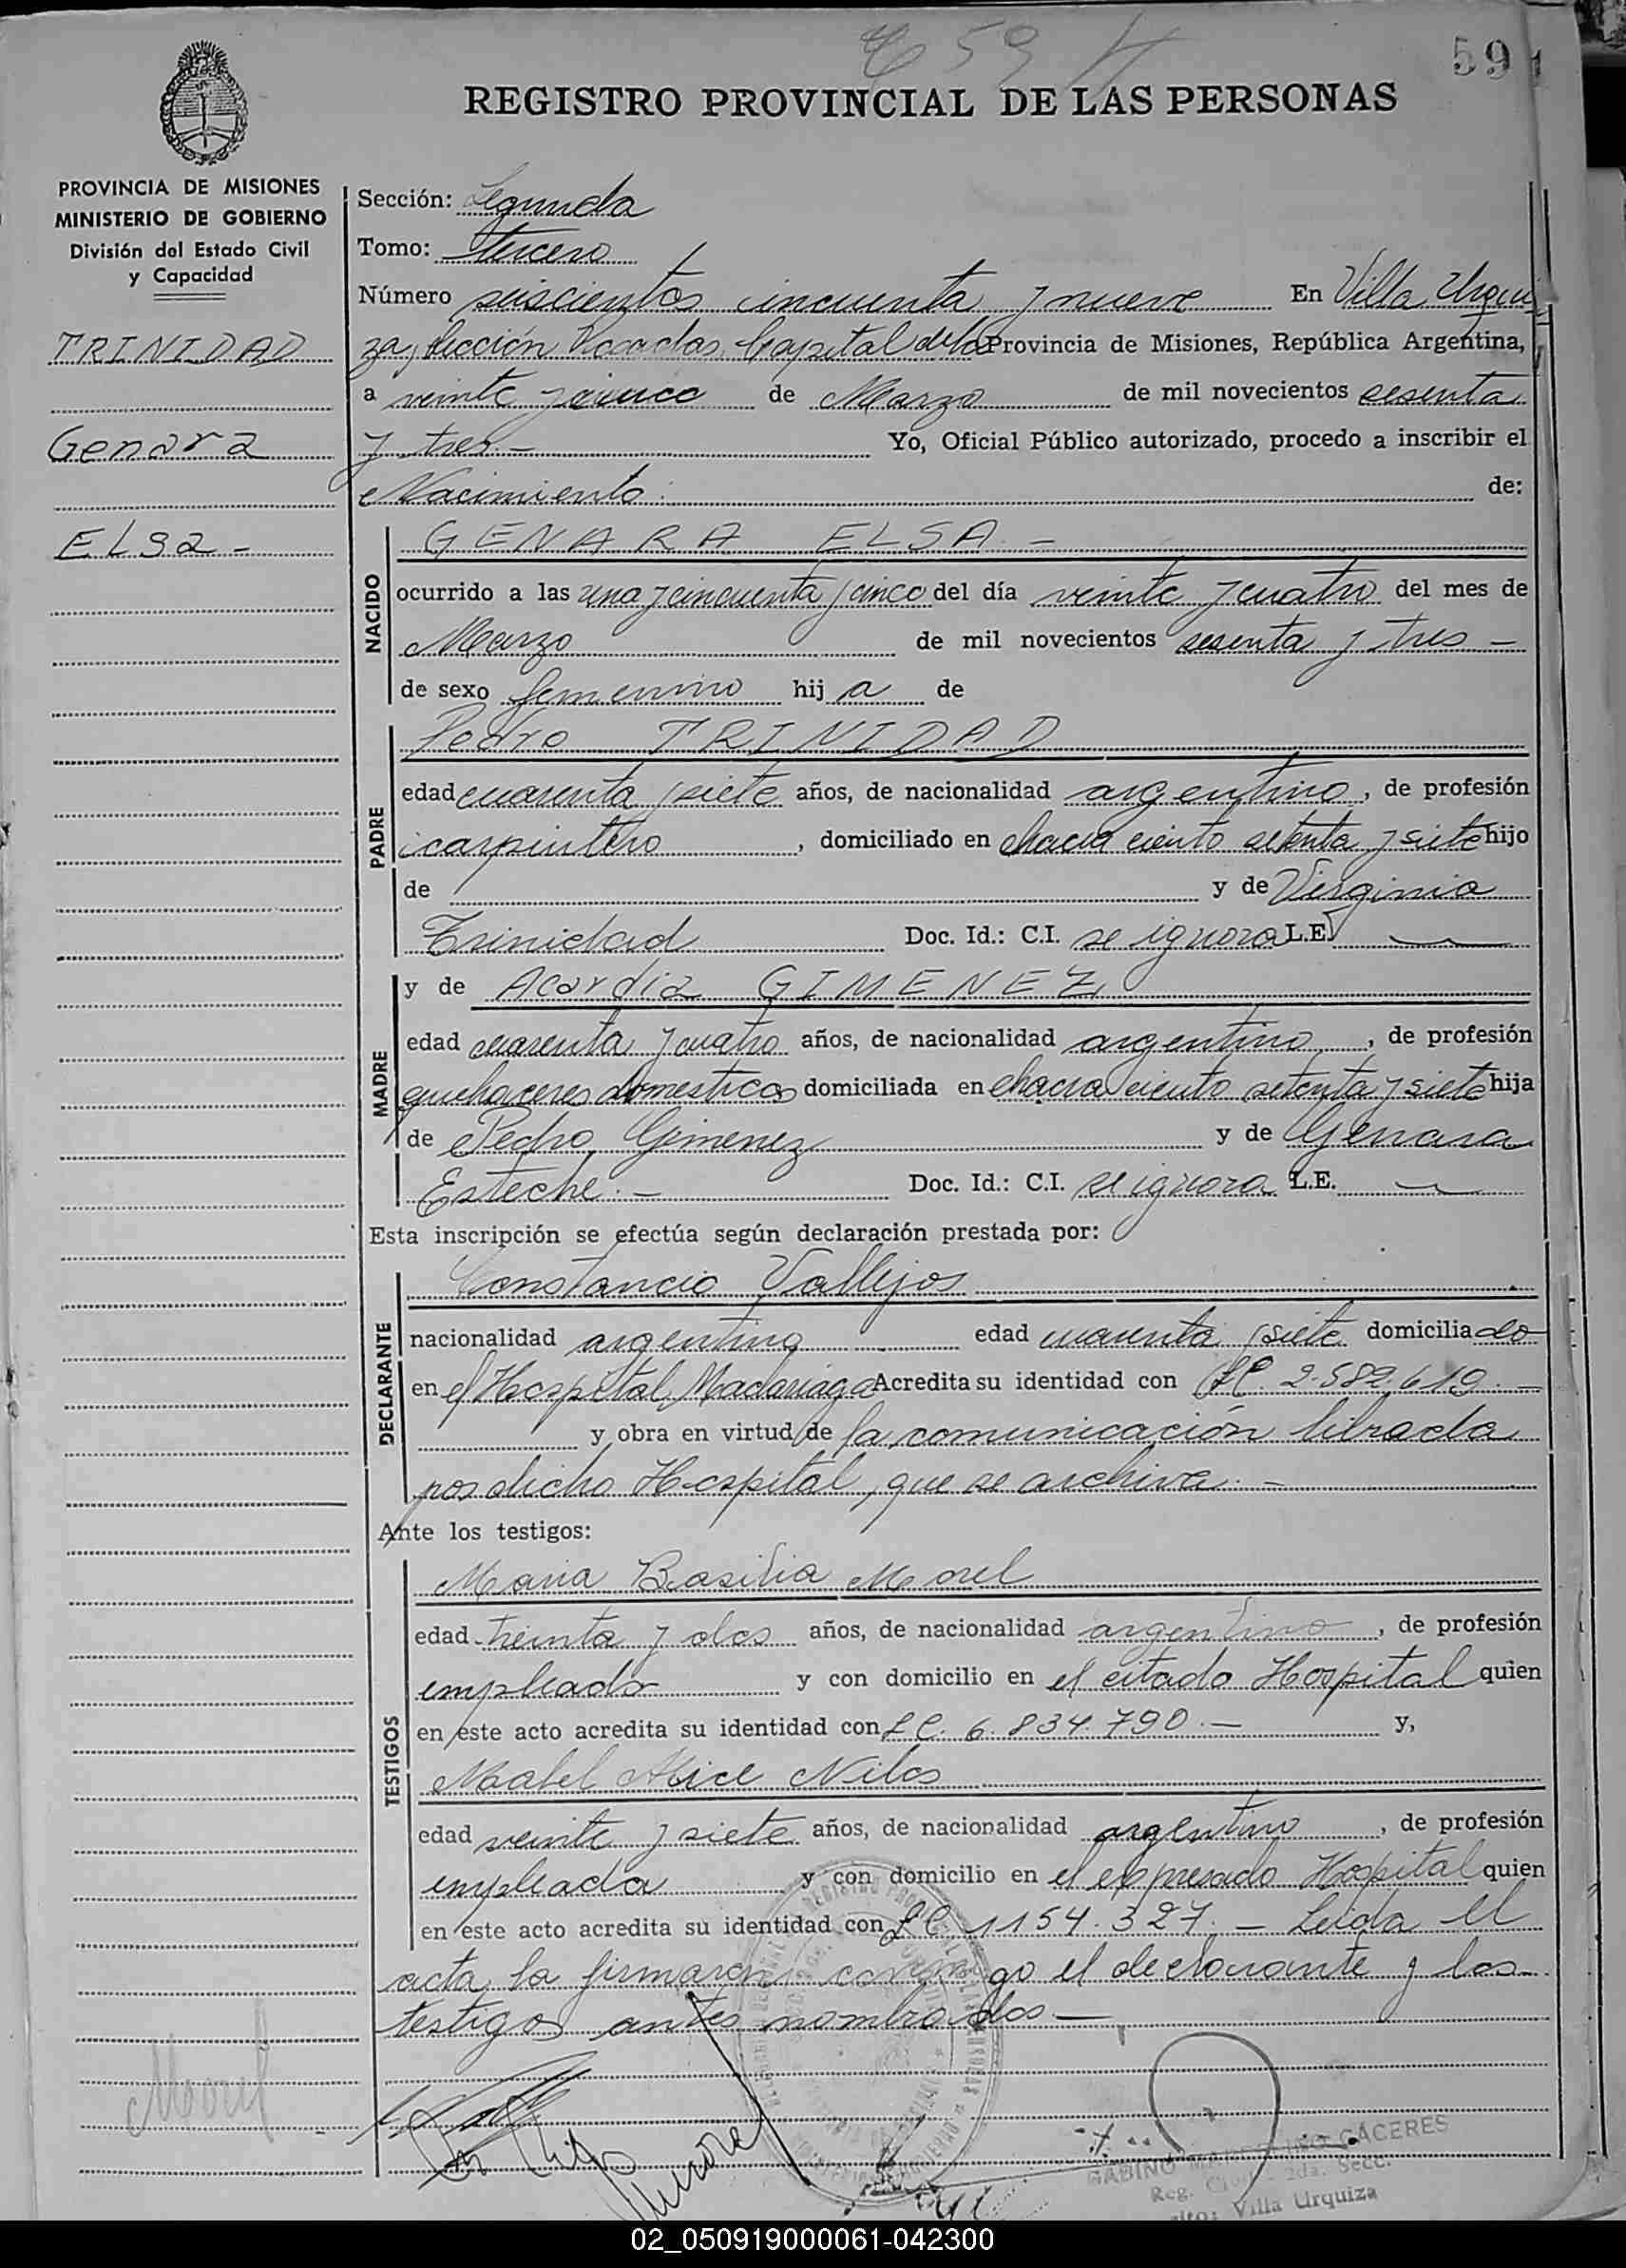 659
59
REGISTRO PROVINCIAL DE LAS PERSONAS
PROVINCIA DE MISIONES
MINISTERIO DE GOBIERNO
División del Estado Civil
y Capacidad
TRINIDAD
Genara
ELsa -
Sección: Segunda
Tomo: tercero
Número seiscientos cincuenta y nueve En Villa Urqui
za, sección Posadas, Capital de la Provincia de Misiones, República Argentina,
a veinte y cinco de Marzo de mil novecientos sesenta
y tres.- Yo, Oficial Público autorizado, procedo a inscribir el
Nacimiento. de:
NACIDO
GENARA ELSA.-
ocurrido a las una y cincuenta y cinco del día veinte y cuatro del mes de
Marzo de mil novecientos sesenta y tres -
de sexo femenino hij a de
PADRE
Pedro TRINIDAD
edad cuarenta y siete años, de nacionalidad argentino, de profesión
carpintero, domiciliado en chacra ciento setenta y siete hijo
de y de Virginia
Trinidad Doc. Id.: C.I. se ignora L.E.
MADRE
y de Acordia GIMENEZ,
edad cuarenta y cuatro años, de nacionalidad argentino, de profesión
quehaceres domesticos domiciliada en chacra ciento setenta y siete hija
de Pedro Gimenez y de Genara
Esteche.- Doc. Id.: C.I. se ignora L.E.
Esta inscripción se efectúa según declaración prestada por:
DECLARANTE
Constancio Vallejos
nacionalidad argentino edad cuarenta y siete domiciliado
en el Hospital Madariaga Acredita su identidad con 2.582.619.-
y obra en virtud de la comunicación librada
por dicho Hospital, que se archiva.-
Ante los testigos:
TESTIGOS
Maria Basilia Morel
edad treinta y dos años, de nacionalidad argentino, de profesión
empleada y con domicilio en el citado Hospital quien
en este acto acredita su identidad con L.C. 6.834.790.- y,
Mabel Alice Nilos
edad veinte y siete años, de nacionalidad argentino, de profesión
empleada y con domicilio en el expresado Hospital quien
en este acto acredita su identidad con L.C. 1154.327.- Leida el
acta la firmaron conmigo el declarante y los
testigos antes nombrados -
Morel
GABINO MARCELINO CACERES
Reg. Civil - 2da. Secc.
Villa Urquiza
02_050919000061-042300